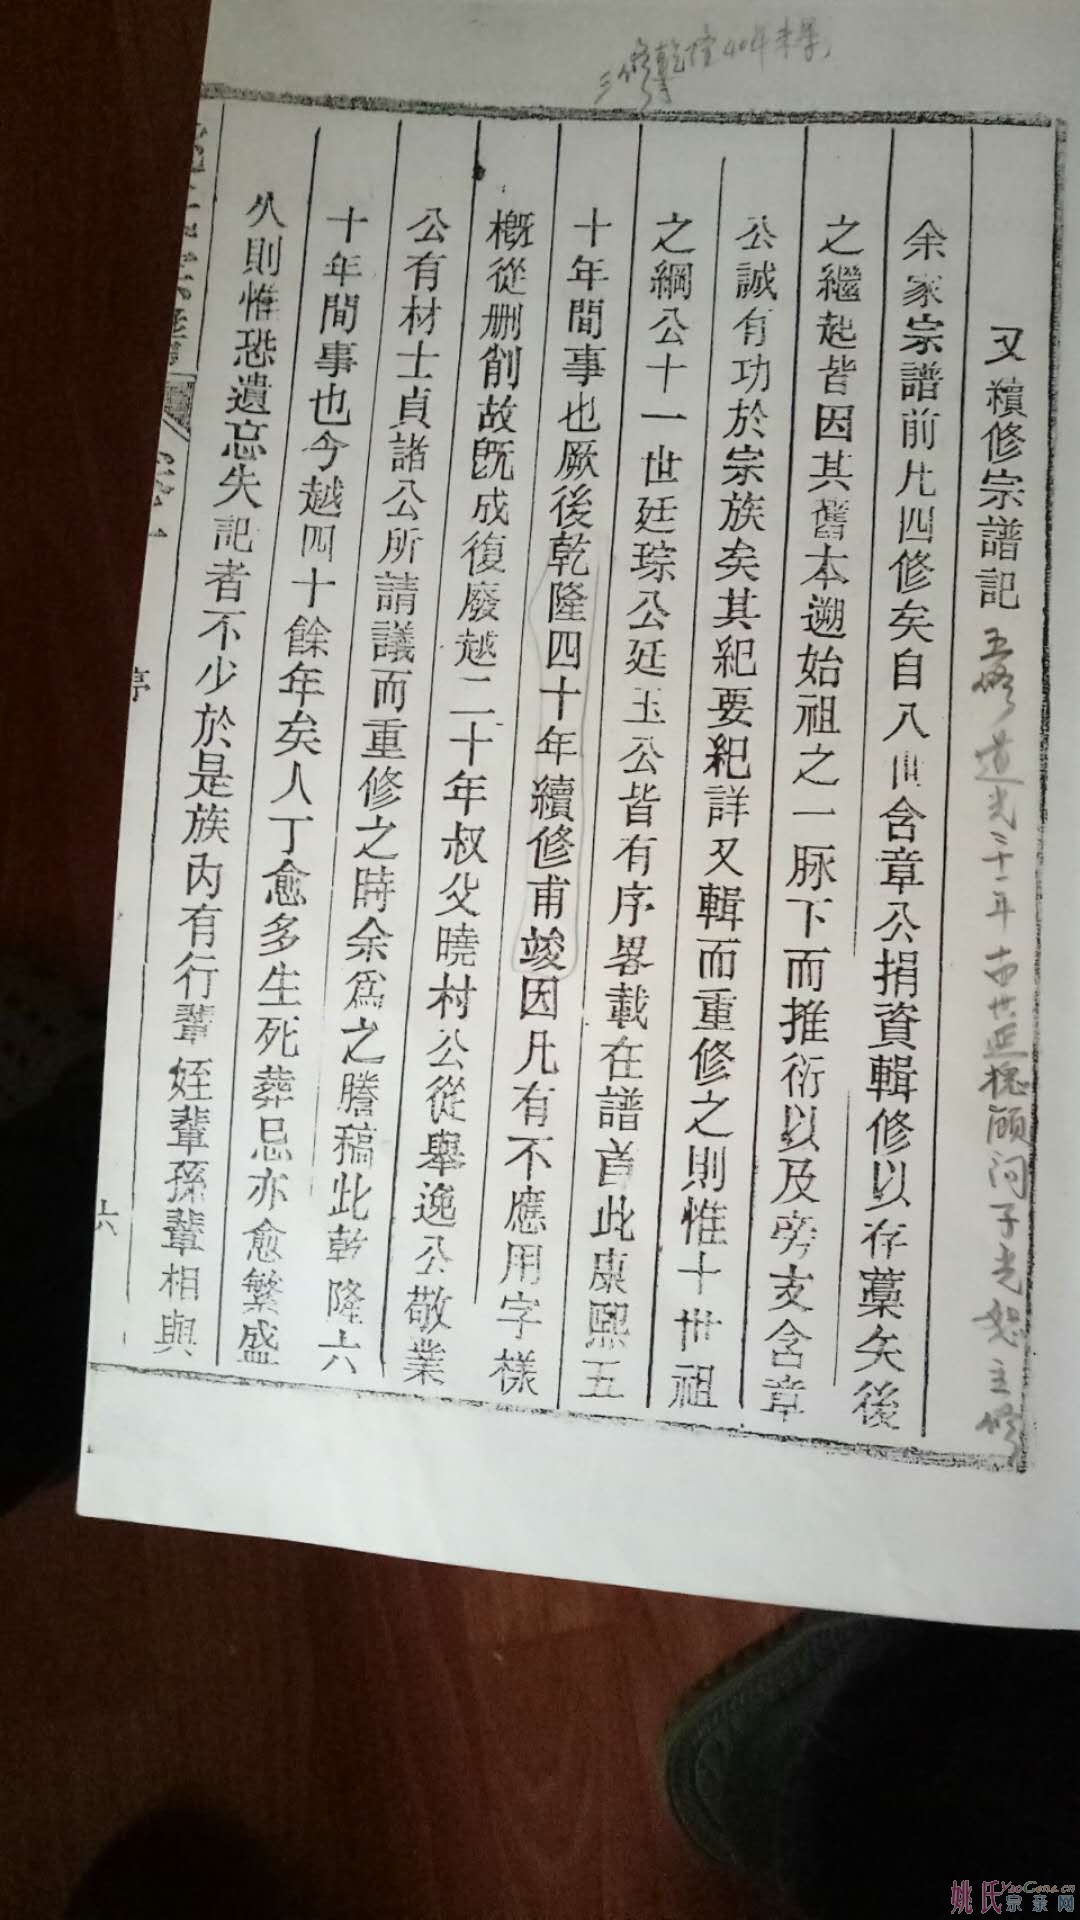 三修乾隆40年未果
又續修宗譜記 五修 道光二十年 十四世 廷槐 顧問 子光恕主修
余家宗譜前凡四修矣自八世含章公捐資輯修以存藁矣後
之繼起皆因其舊本遡始祖之一脉下而推衍以及旁支含章
公誠有功於宗族矣其紀要紀詳又輯而重修之則惟十世祖
之綱公十一世廷琮公廷玉公皆有序畧載在譜首此康熙五
十年間事也厥後乾隆四十年續修甫竣因凡有不應用字樣
概從刪削故旣成復廢越二十年叔父曉村公從舉逸公敬業
公有材士貞諸公所請議而重修之時余爲之謄稿此乾隆六
十年間事也今越四十餘年矣人丁愈多生死葬忌亦愈繁盛
久則惟恐遺忘失記者不少於是族內有行輩姪輩孫輩相與
六
姚氏宗亲网
YaoGens.cn